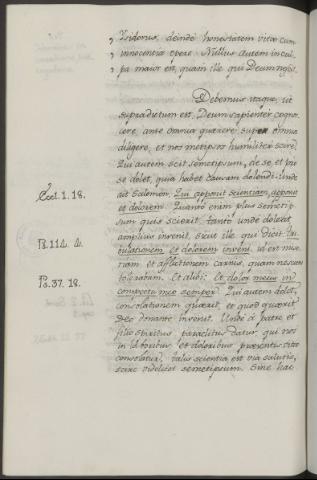 Isidorus, deinde honestatem vitae cum
innocentia opere. Nullus autem in cul-
pa maior est, quam ille qui Deum nescit.
Debemus itaque, ut
supradictum est, Deum sapienter cogno-
scere, ante omnia quaerere super omnia
diligere, et nos metipsos humiliter scire.
Qui autem scit semetipsum, de se, et pro
se dolet, quia habet causam dolendi. Unde
ait Salomon, Qui apponit scientiam, apponit
et dolorem. Quanto enim plus semetip-
sum quis scierit, tanto unde doleat,
amplius invenit, sicut ille qui dicit Tri-
bulationem et dolorem inveni, id est mi-
riam et afflictionem carnis, quam nesciens
tolerabam. Et alibi: Et dolor meus in
conspectu meo semper. Qui autem dolet,
consolationem quaerit, et quod quaerit
Deo donante invenit. Unde a patre et
filio spiritus paraclitus datur, qui nos
in laboribus et doloribus praesentis vitae
consolatur. Talis scientia est via salutis,
scire videlicet semetipsum. Sine hac
Eccl. 1. 18.
Ps. 114. 4.
Ps. 37. 18.